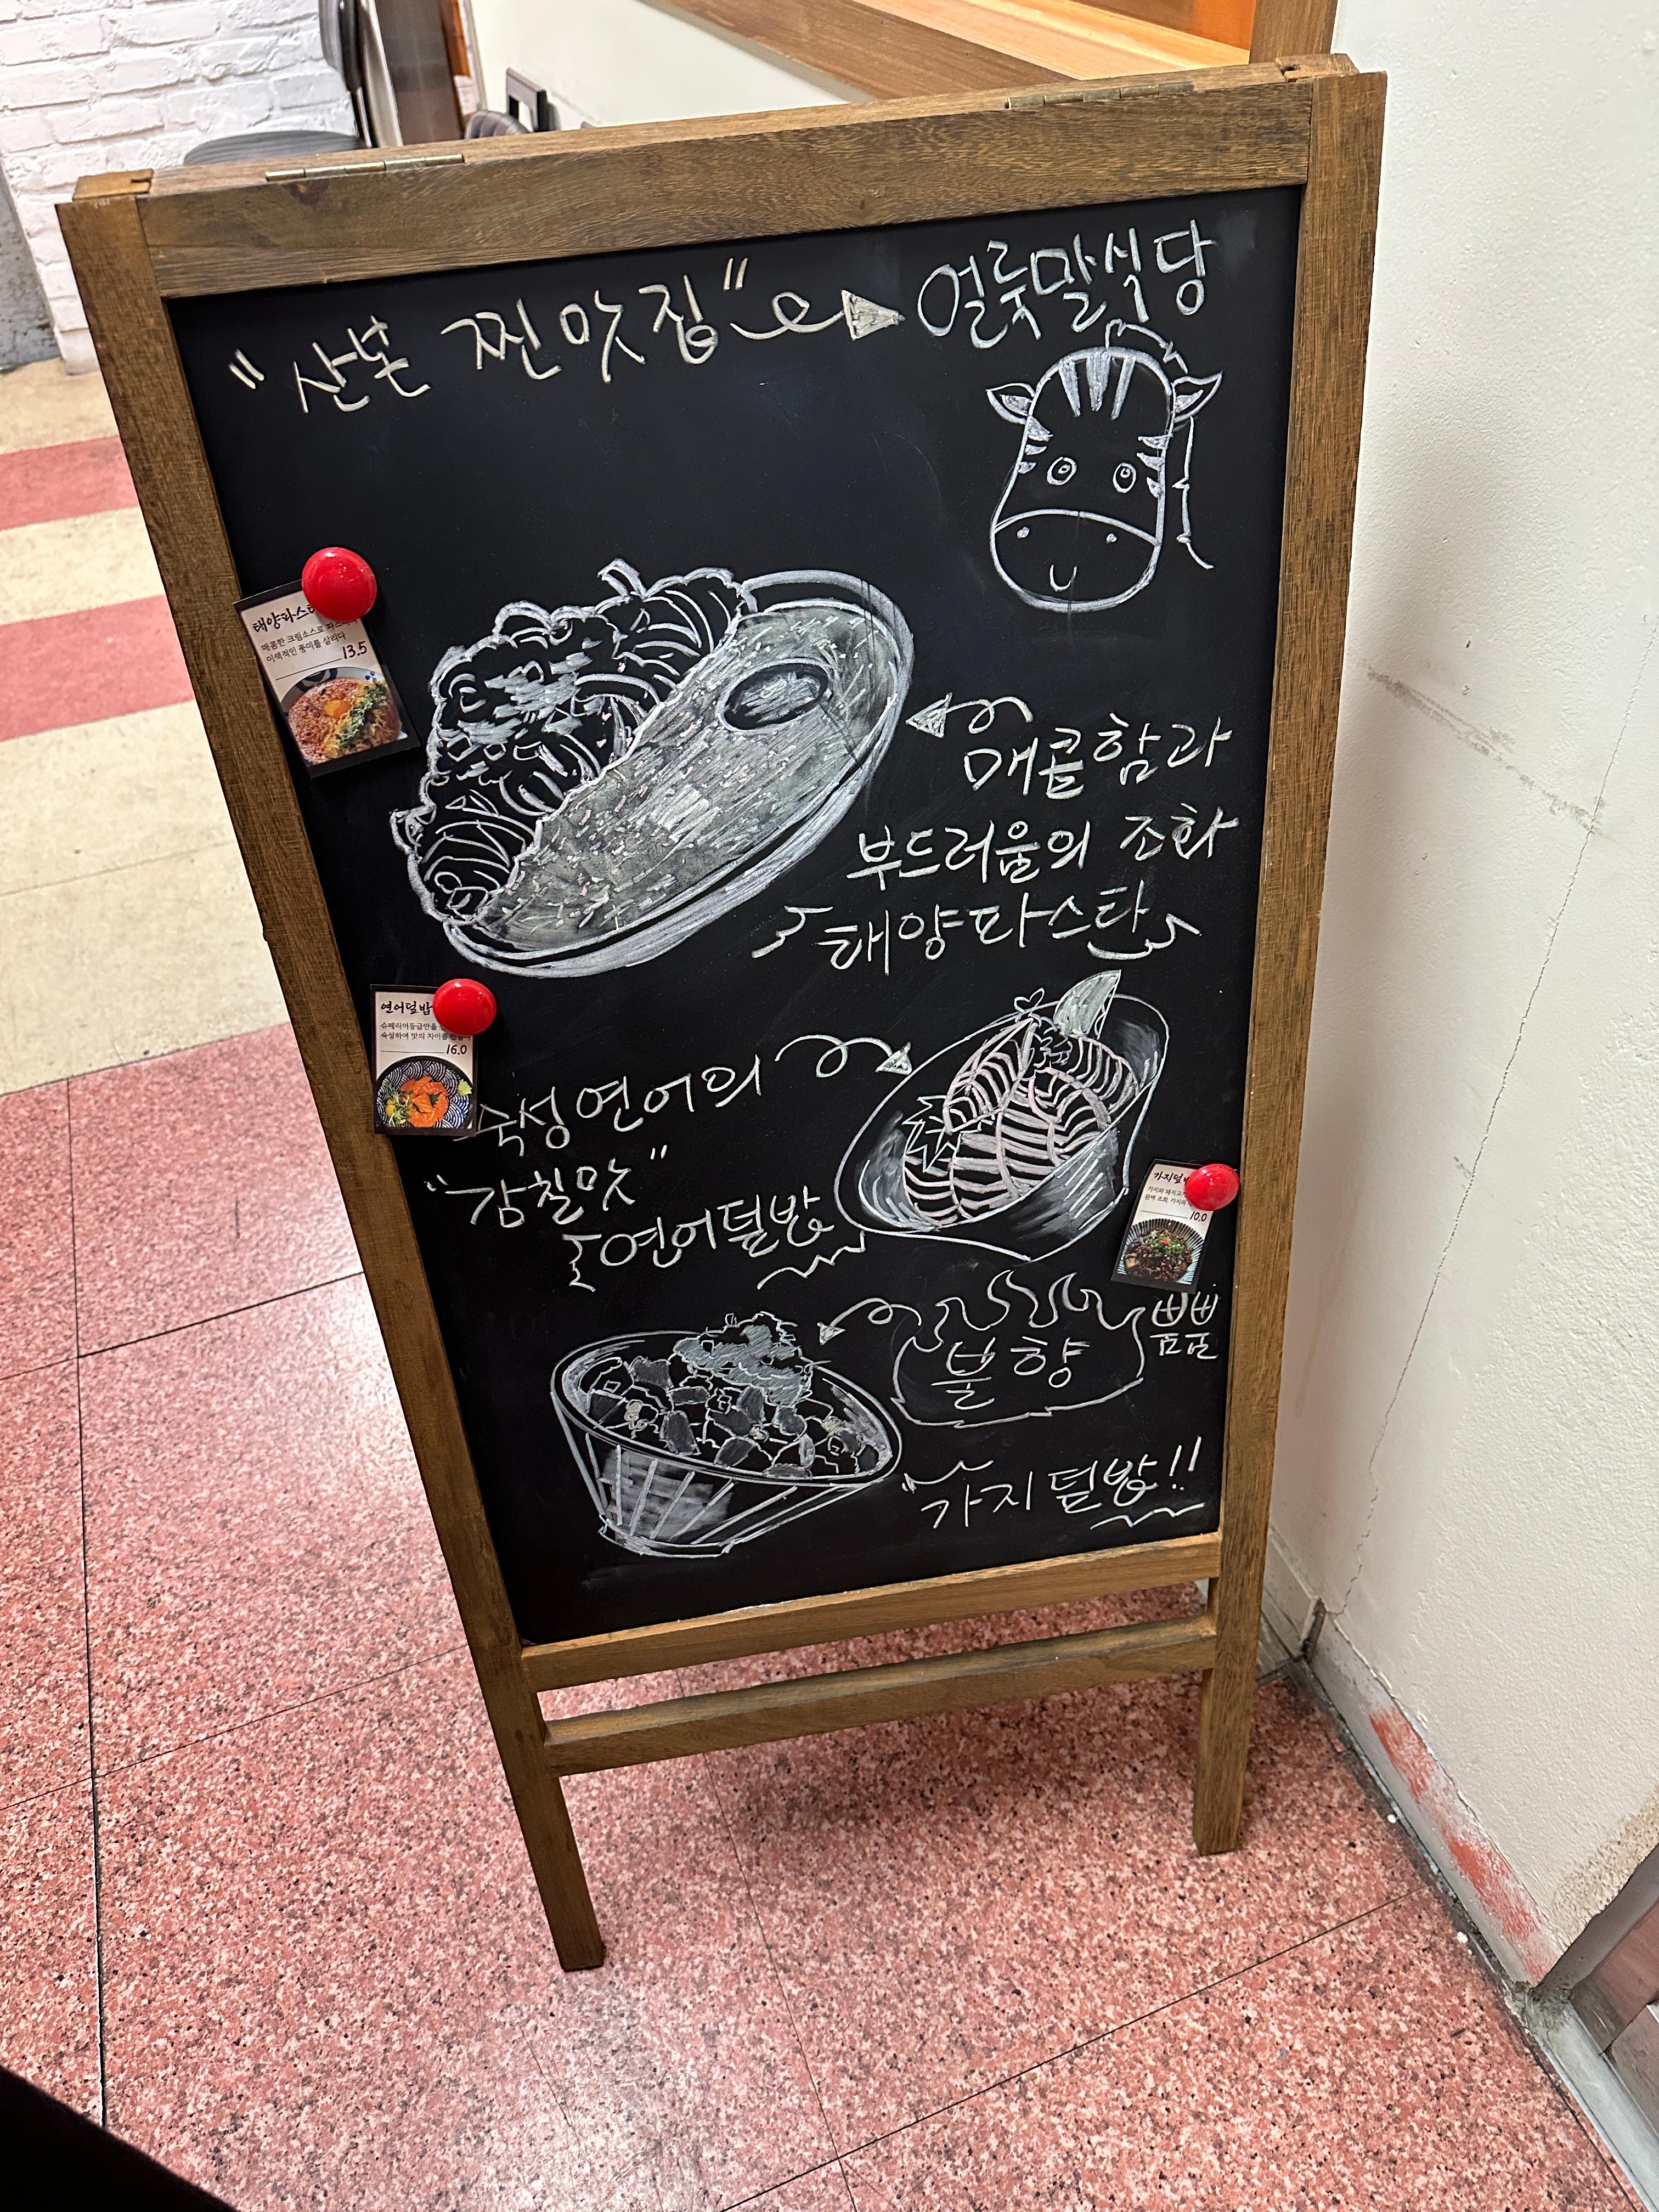 "산본 찐맛집"
얼룩말식당
태양파스타
매콤한 크림소스로 파스타의
이색적인 풍미를 살리다
13.5
매콤함과
부드러움의 조화
태양파스타
연어덮밥
슈페리어등급만을
숙성하여 맛의 차이를
16.0
숙성연어의
"감칠맛"
연어덮밥
가지덮밥
가지와 돼지고기
완벽 조화, 가지의
10.0
불향
뿜뿜
"가지덮밥!!